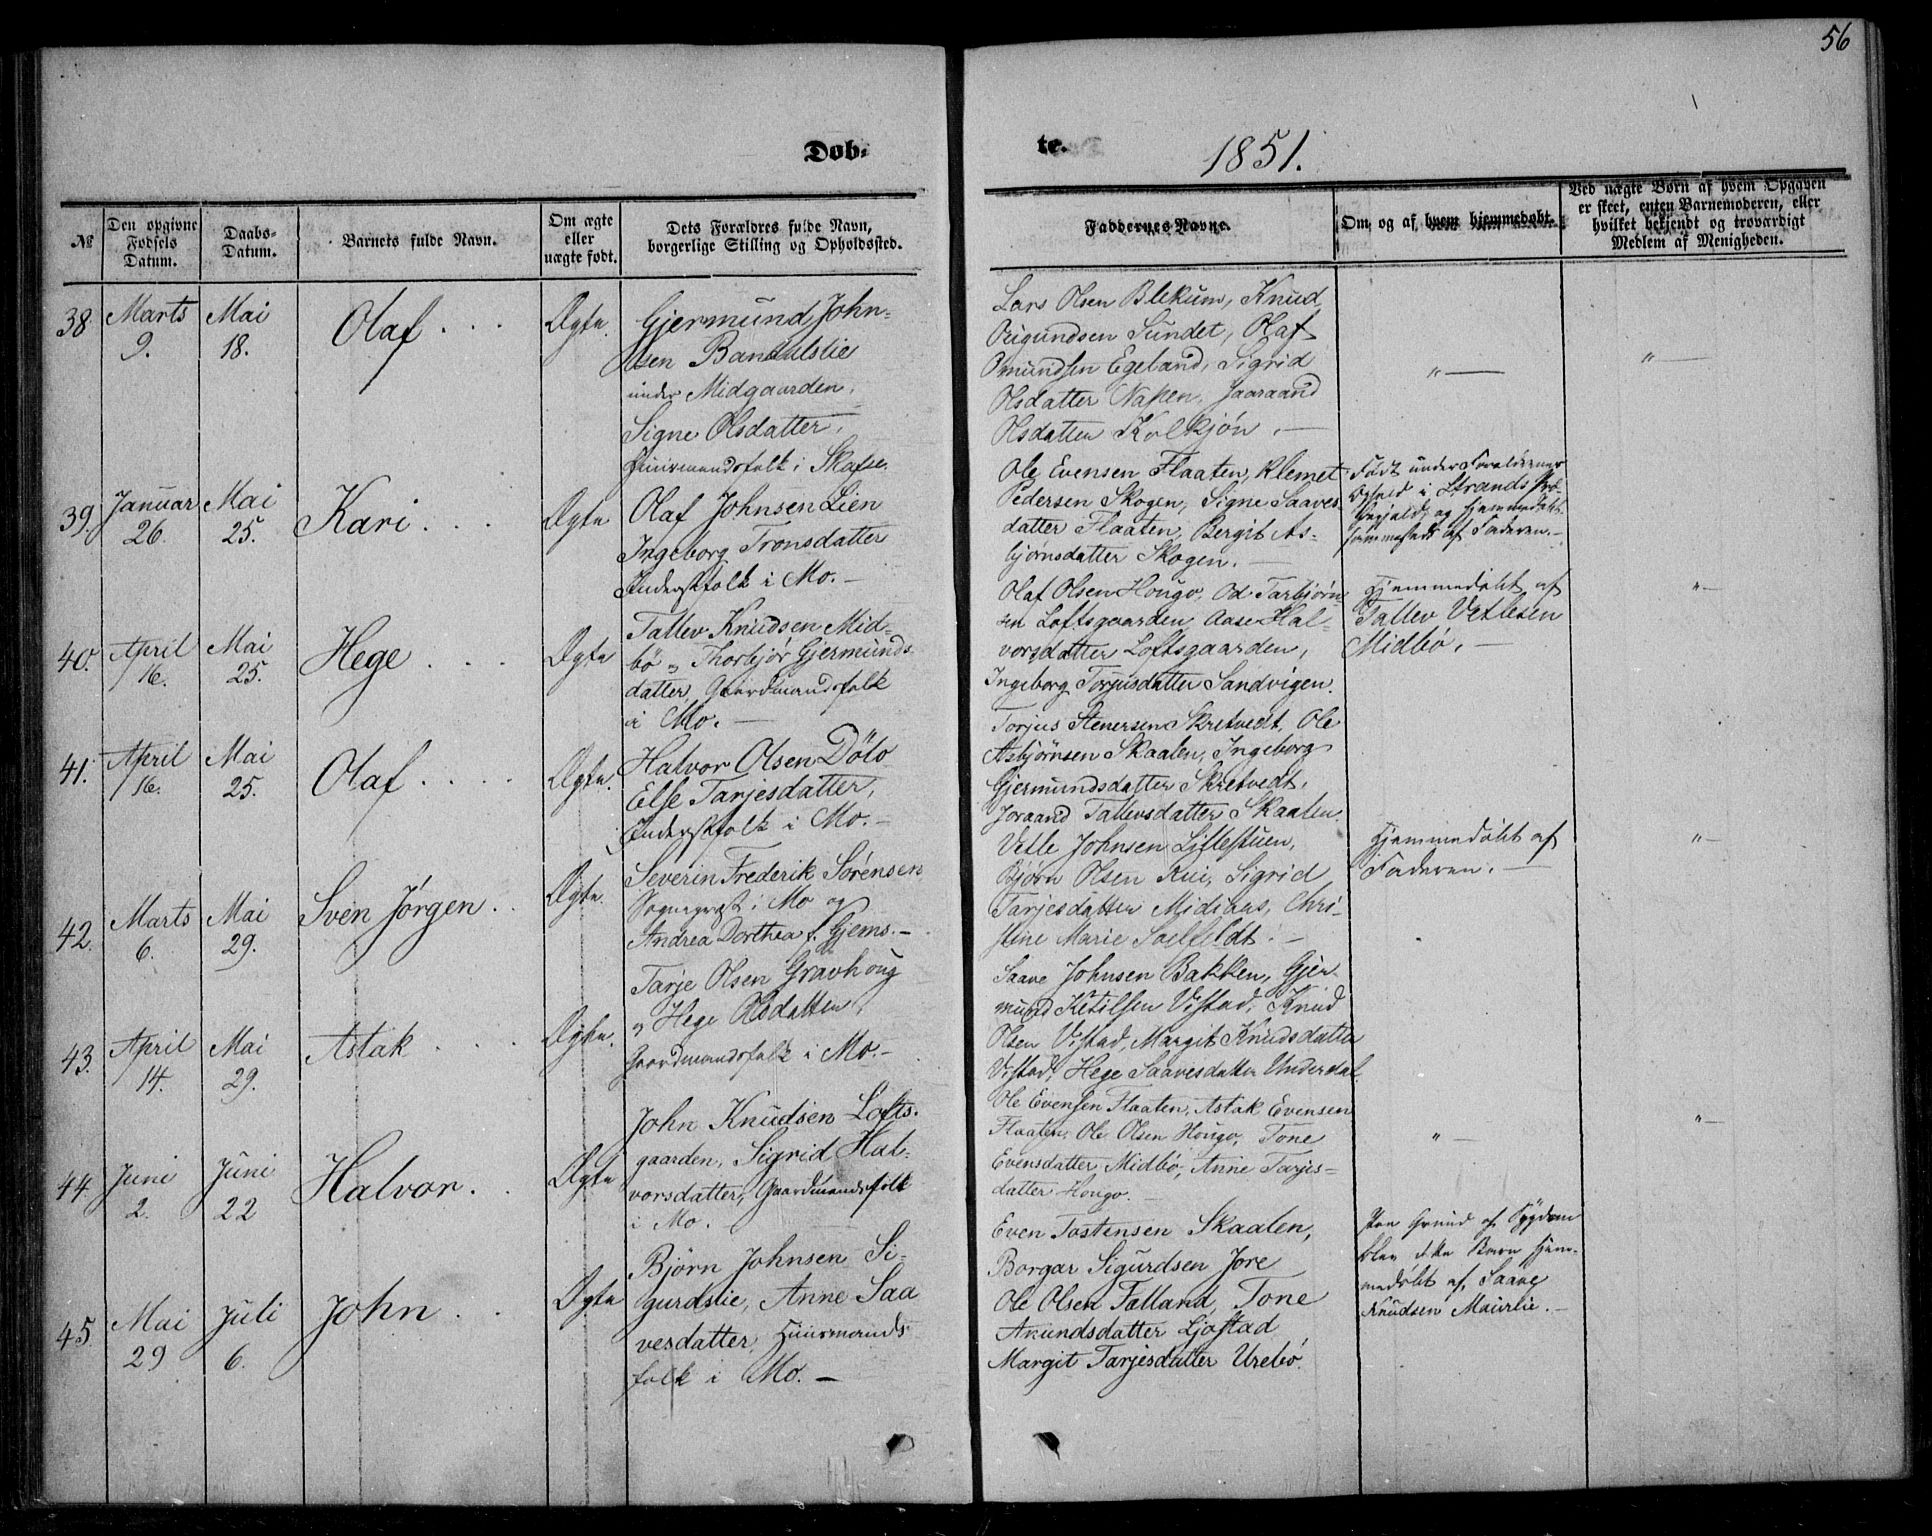 56
Døb-
te.
1851.
№
Den opgivne Fødsels Datum.
Daabs-Datum.
Barnets fulde Navn.
Om ægte eller uægte født.
Dets Forældres fulde Navn, borgerlige Stilling og Opholdssted.
Faddernes Navne.
Om og af hvem hjemmedøbt.
Ved uægte Børn af hvem Opgaven er skeet, enten Barnemoderen, eller hvilket bekjendt og troværdigt Medlem af Menigheden.
38
Marts 9.
Mai 18.
Olaf
Ægte.
Gjermund John-
sen
under Midgaarden,
Signe Olsdatter,
Huusmandsfolk i Skafse.
Lars Olsen Blekum, Knud
Sundet, Olaf
Omundsen Egeland, Sigrid
Olsdatter Napen, Jaaraand
Olsdatter Kolkjøn.
"—
"—
39.
Januar 26.
Mai 25.
Kari
Ægte
Olaf Johnsen Lien
Ingeborg Tronsdatter
Inderstfolk i Mo.—
Ole Evensen Flaaten, Klemet
Pedersen Skogen, Signe Saaves
datter Flaaten, Bergit As-
bjørnsdatter Skogen.—
Født under Forældrenes
Ophold i Strands Præ-
stegjeld, og hjemmedøbt
sammesteds af Faderen.—
40.
April 16.
Mai 25.
Hege
Ægte
Tallev Knudsen Mid-
bö og Thorbjör Gjermunds
datter, Gaardmandsfolk
i Mo.—
Olaf Olsen Hougo, Od Tarbjørn
sen Loftsgaarden, Aase Hal-
vorsdatter Loftsgaarden,
Ingeborg Torjusdatter Sandvigen.
Hjemmedøbt af
Tallev Vetlesen
Midbö.—
"—
41.
April 16.
Mai 25.
Olaf
Ægte.
Halvor Olsen Dölo
Else Tarjesdatter,
Inderstfolk i Mo.—
Torjus Stenersen Skretvedt, Ole
Asbjørnsen Skaalen, Ingeborg
Gjermundsdatter Skretvedt,
Joraand Tallevsdatter Skaalen.
42.
Marts 6.
Mai 29.
Sven Jörgen
Ægte.
Severin Frederik Sørensen
Sognepræst i Mo og
Andrea Dorthea f. Gjems.—
Vetle Johnsen Lillestuen,
Bjørn Olsen Rui, Sigrid
Tarjesdatter Midiaas, Chri-
stine Marie Soelfeldt.—
Hjemmedøbt af
Faderen.—
"—
43.
April 14.
Mai 29.
Astak
Ægte.
Tarje Olsen Gravhoug
og Hege Olsdatter,
Gaardmandsfolk i Mo.—
Saave Johnsen Bakken, Gjer-
mund Ketilsen Vistad, Knud
Olsen Vistad, Margit Knudsdatter
Vistad, Hege Saavesdatter Underdal.
44.
Juni 2.
Juni 22
Halvor.
Ægte
John Knudsen Lofts-
gaarden, Sigrid Hal-
vorsdatter, Gaardmandsfolk
i Mo.
Ole Evensen Flaaten, Astak Evensen
Flaaten, Ole Olsen Hougo, Tone
Evensdatter Midbö, Anne Tarjes-
datter Hougo.—
"—
"—
45.
Mai 29
Juli 6.
John
Ægte
Bjørn Johnsen Si-
gurdslie, Anne Saa
vesdatter, Huusmands
folk i Mo.—
Even Tostensen Skaalen,
Borgar Sigurdsen Jore
Ole Olsen Talland, Tone
Amundsdatter Ljostad
Margit Tarjesdatter Urebö.
Paa Grund af Sygdom
blev dette Barn hjem-
medøbt af Saave
Knudsen Maierlie.—